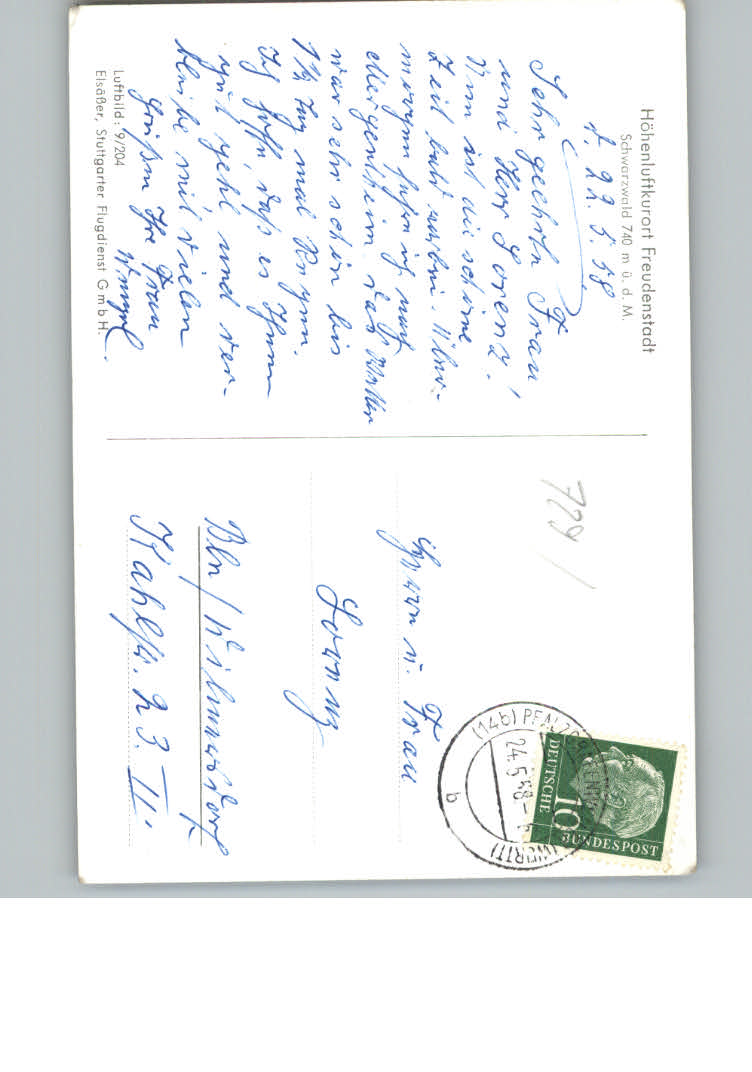 Höhenluftkurort Freudenstadt
Schwarzwald 740 m ü. d. M.
d. 22. 5. 58
Sehr geehrte Frau
und Herr Lorenz!
Nun ist die schöne
Zeit bald vorbei. Über-
morgen fahren wir nach
das Wetter
war sehr schön bis
1½ Tag mal Regen.
Ich hoffe, daß es Ihnen
gut geht und ver-
bleibe mit vielen
Grüßen Ihre Frau
Luftbild: 9/204
Elsäßer, Stuttgarter Flugdienst GmbH.
729/
Herrn u. Frau
Lorenz
Bln/Wilmersdorf
Kahlstr. 23. II
(14b) PFALZGRAFENWEILER (WÜRTT)
24.5.58
b
DEUTSCHE
BUNDESPOST
10